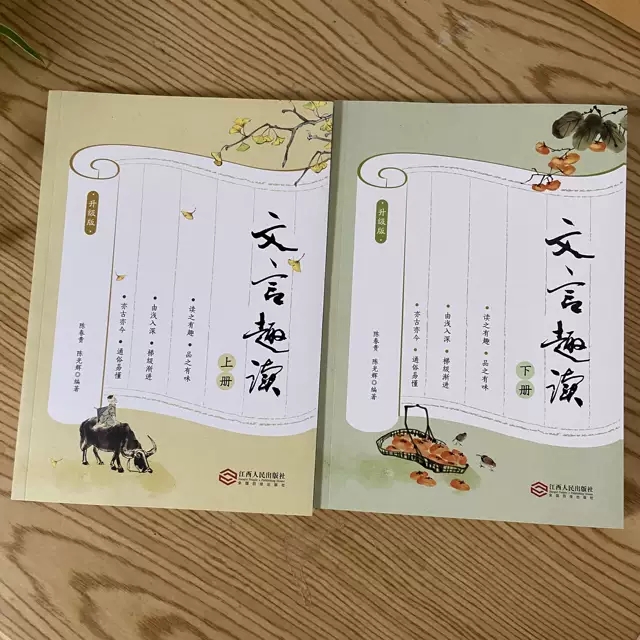 升级版
文言趣读
上册
读之有趣 • 品之有味
由浅入深 • 梯级渐进
亦古亦今 • 通俗易懂
陈春贵 陈光辉 编著
江西人民出版社
升级版
文言趣读
下册
读之有趣 • 品之有味
由浅入深 • 梯级渐进
亦古亦今 • 通俗易懂
陈春贵 陈光辉 编著
江西人民出版社